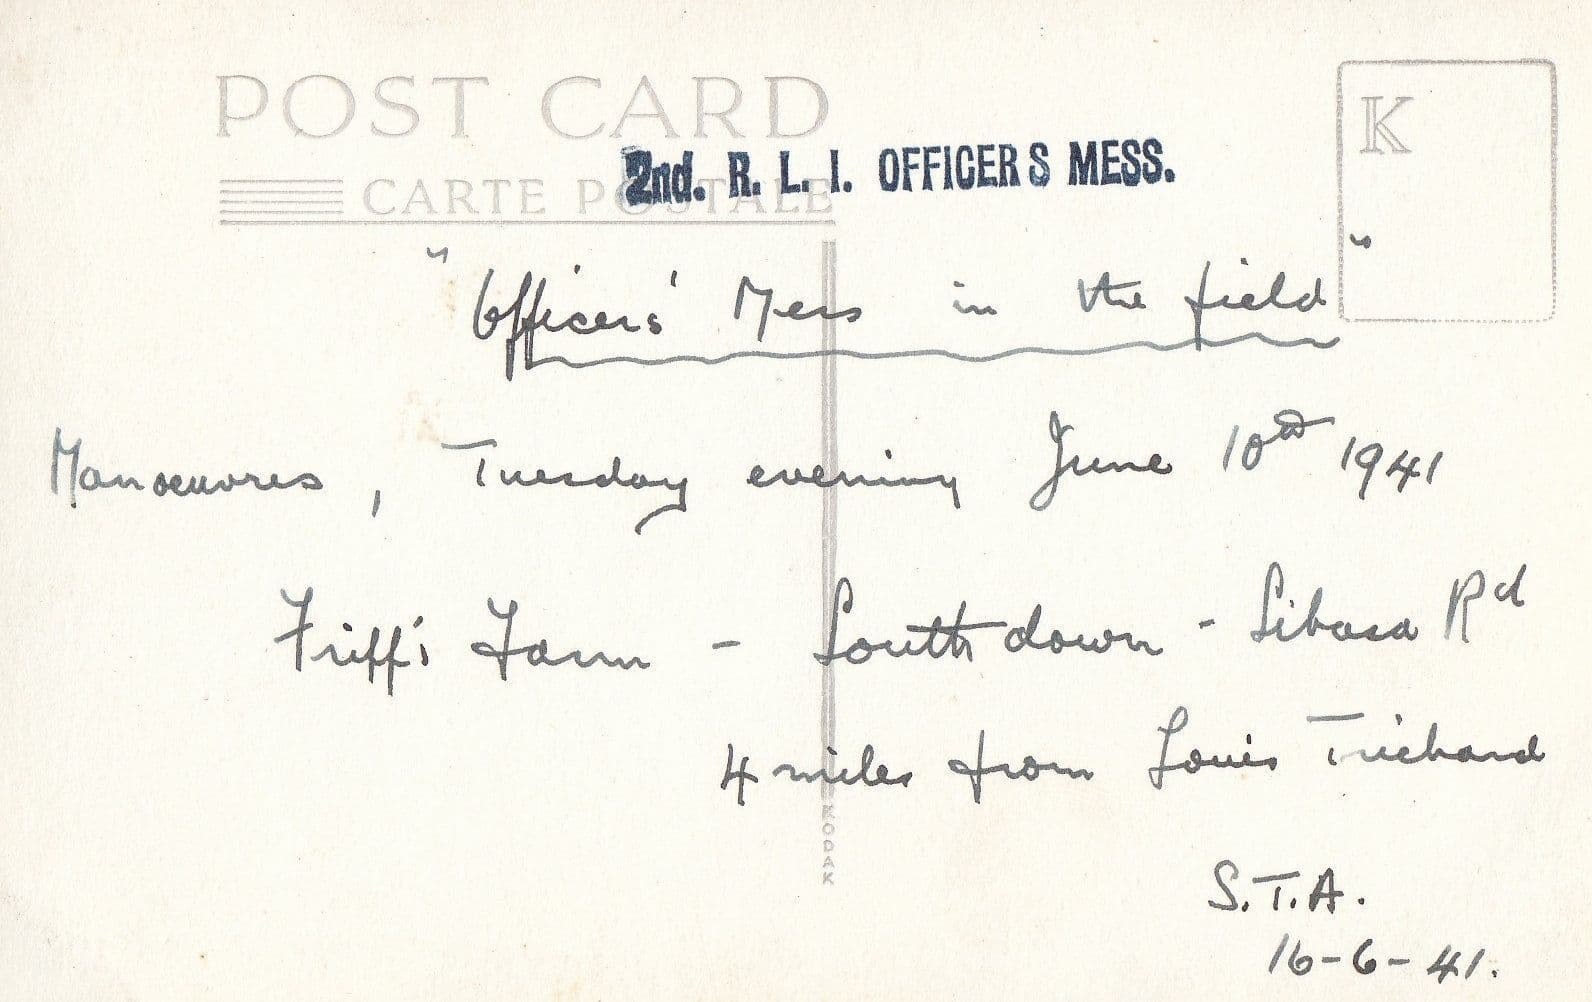 POST CARD
CARTE POSTALE
K
2nd. R. L. I. OFFICERS MESS.
"Officers' Mess in the field"
Manoeuvres, Tuesday evening June 10th 1941
Friff's Farm - Southdown - Sibasa Rd
4 miles from Louis Trichard
KODAK
S.T.A.
16-6-41.